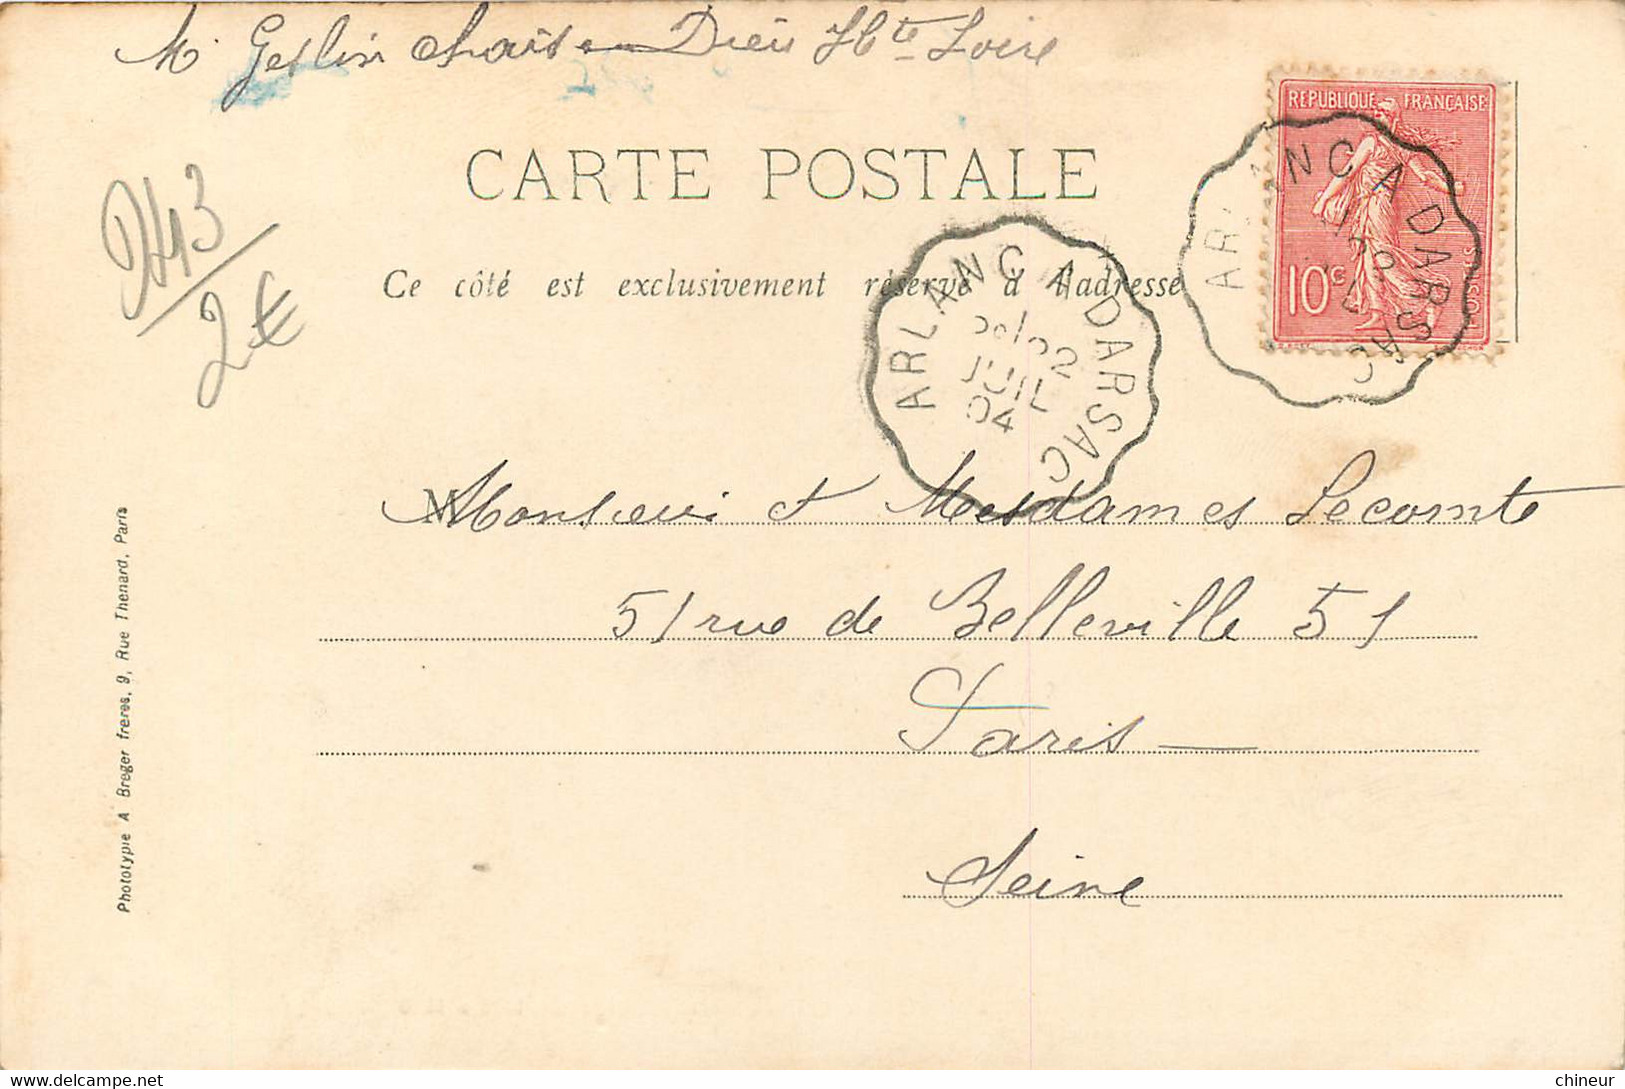 M. Geslin Chaise-Dieu Hte Loire
RÉPUBLIQUE FRANÇAISE
10c
CARTE POSTALE
Ce côté est exclusivement réservé à l'adresse
ARLANC A DARSAC
JUIL
04
ARLANC A DARSAC
2€
M
Monsieur et Mesdames Lecomte
51 rue de Belleville 51
Paris —
Seine
Phototypie A Breger freres, 9, Rue Thenard, Paris
chineur